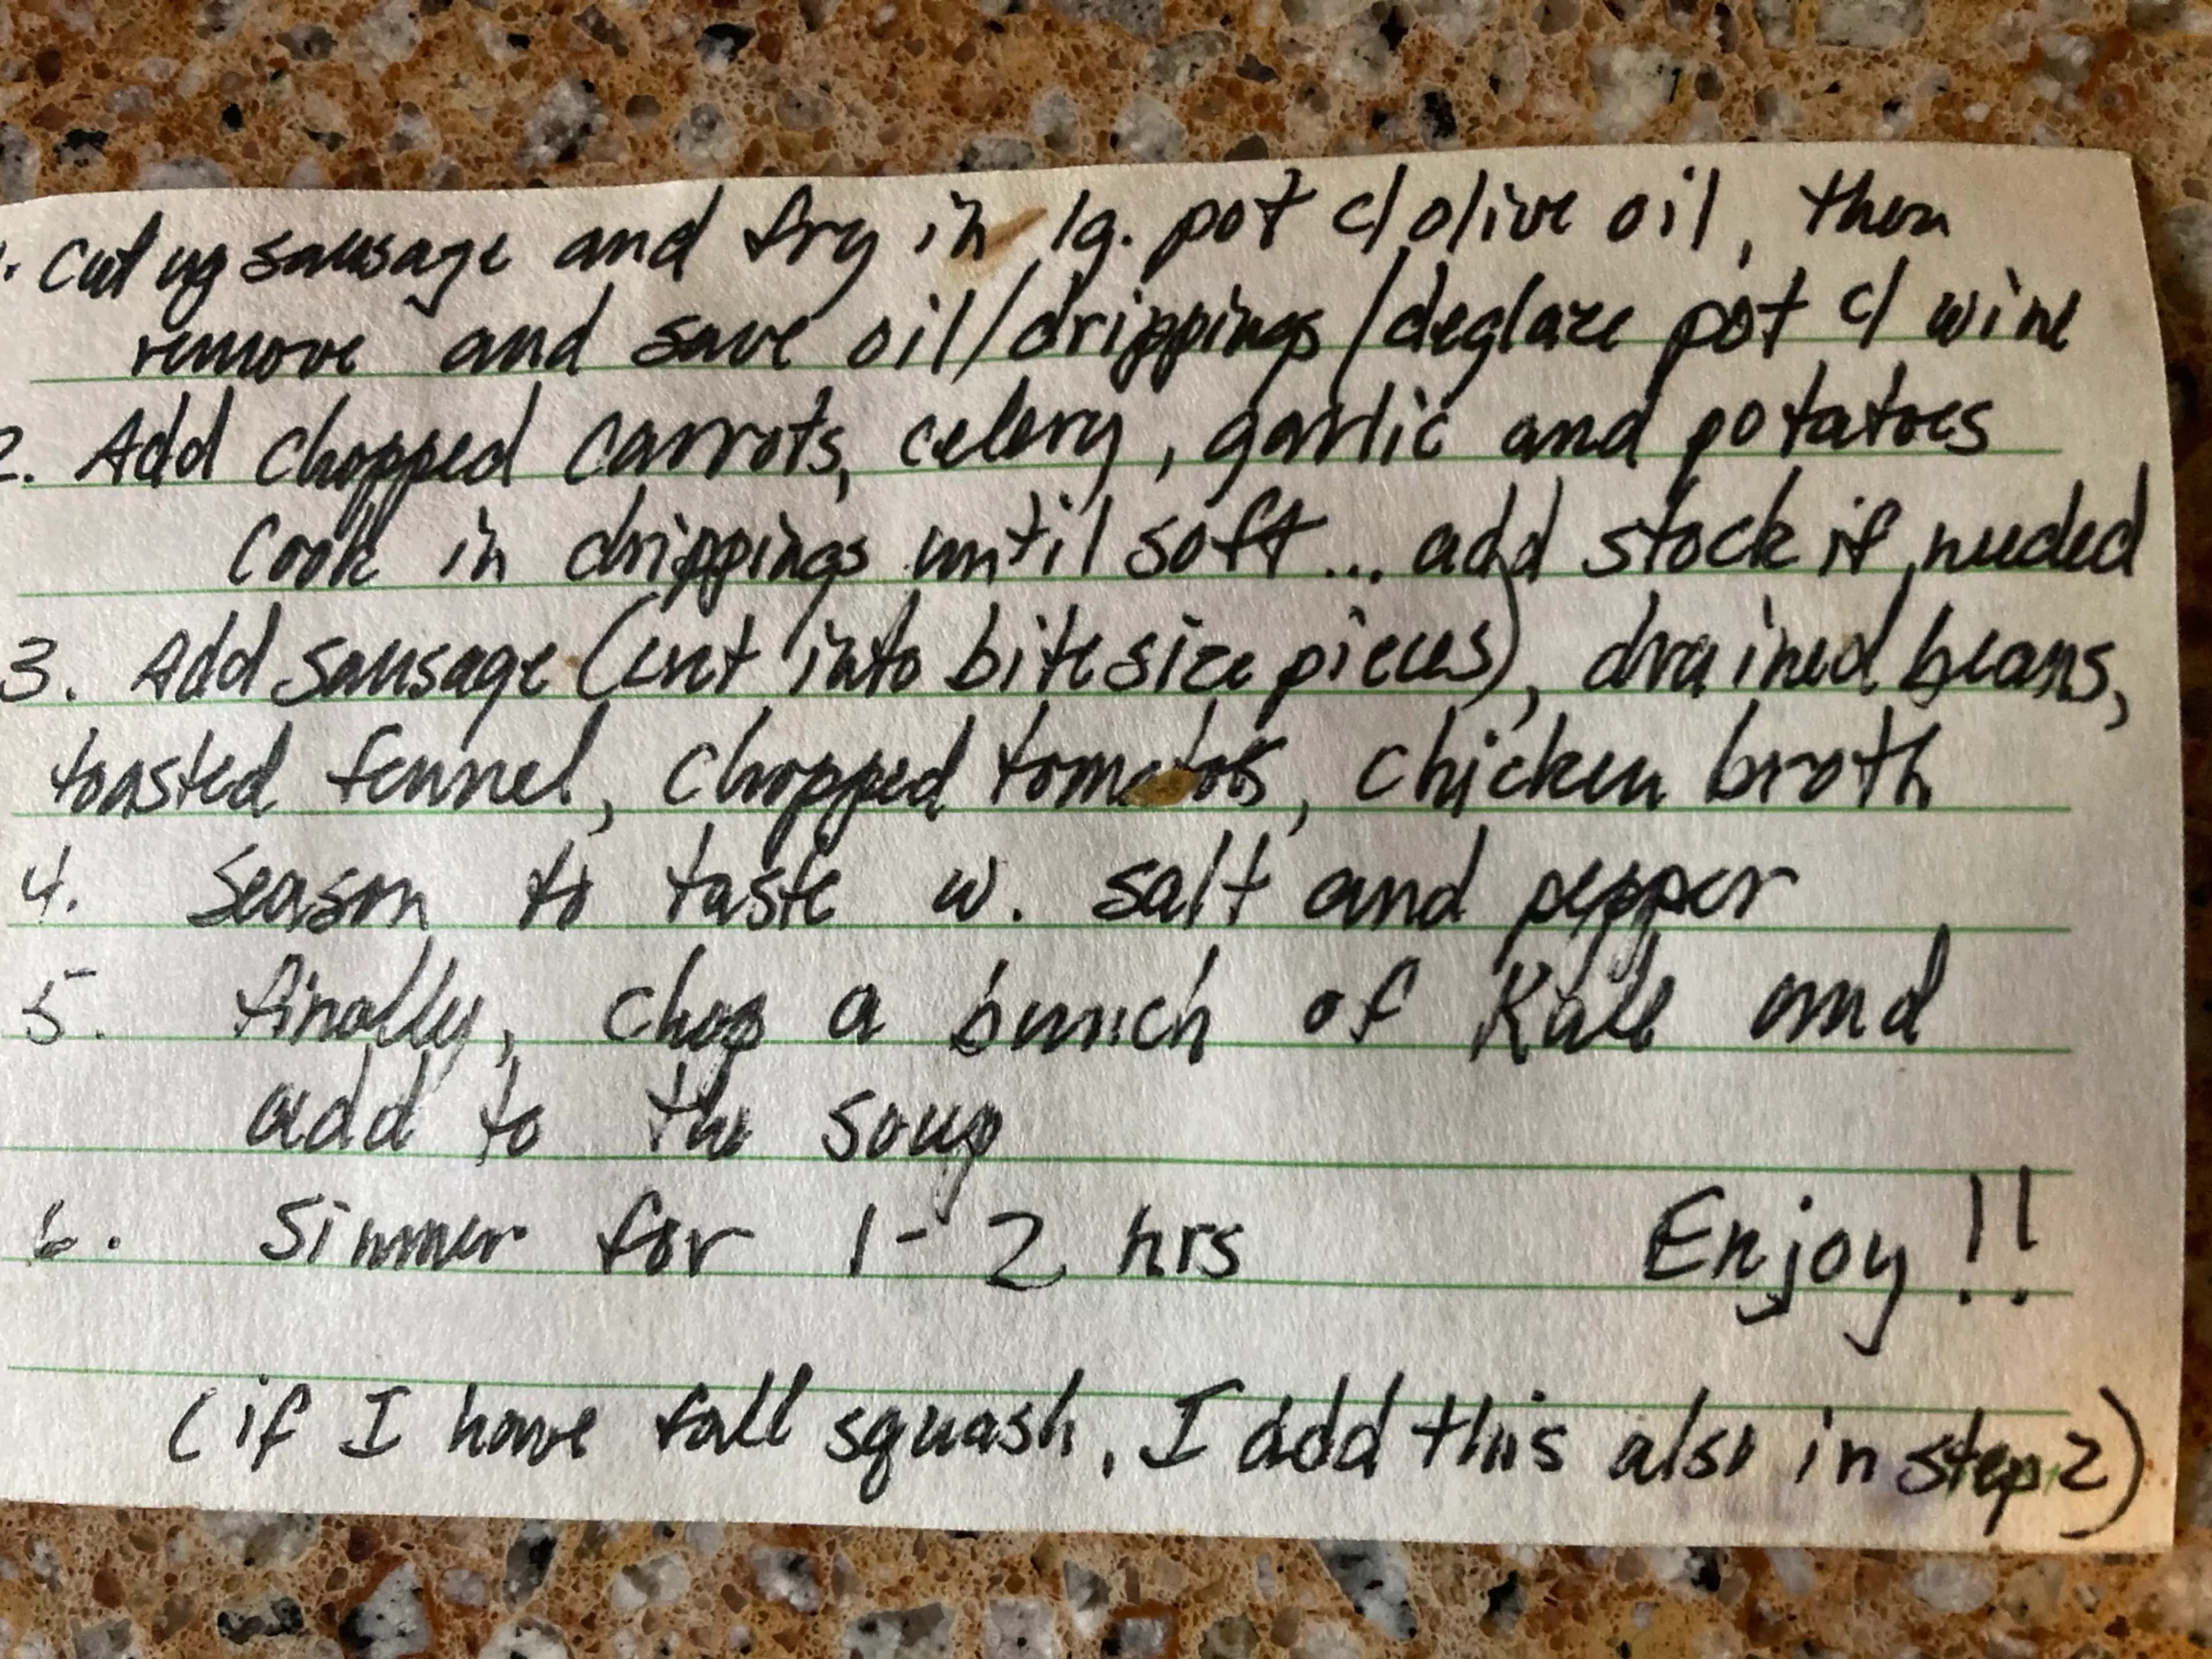 1. Cut up sausage and fry in lg. pot c/ olive oil, then
remove and save oil/drippings/deglaze pot c/ wine
2. Add chopped carrots, celery, garlic and potatoes
Cook in drippings until soft... add stock if needed
3. Add sausage (cut into bite size pieces), drained beans,
toasted fennel, chopped tomatoes, chicken broth
4. Season to taste w. salt and pepper
5. finally, chop a bunch of Kale and
add to the soup
6. Simmer for 1-2 hrs Enjoy!!
(if I have fall squash, I add this also in step 2)